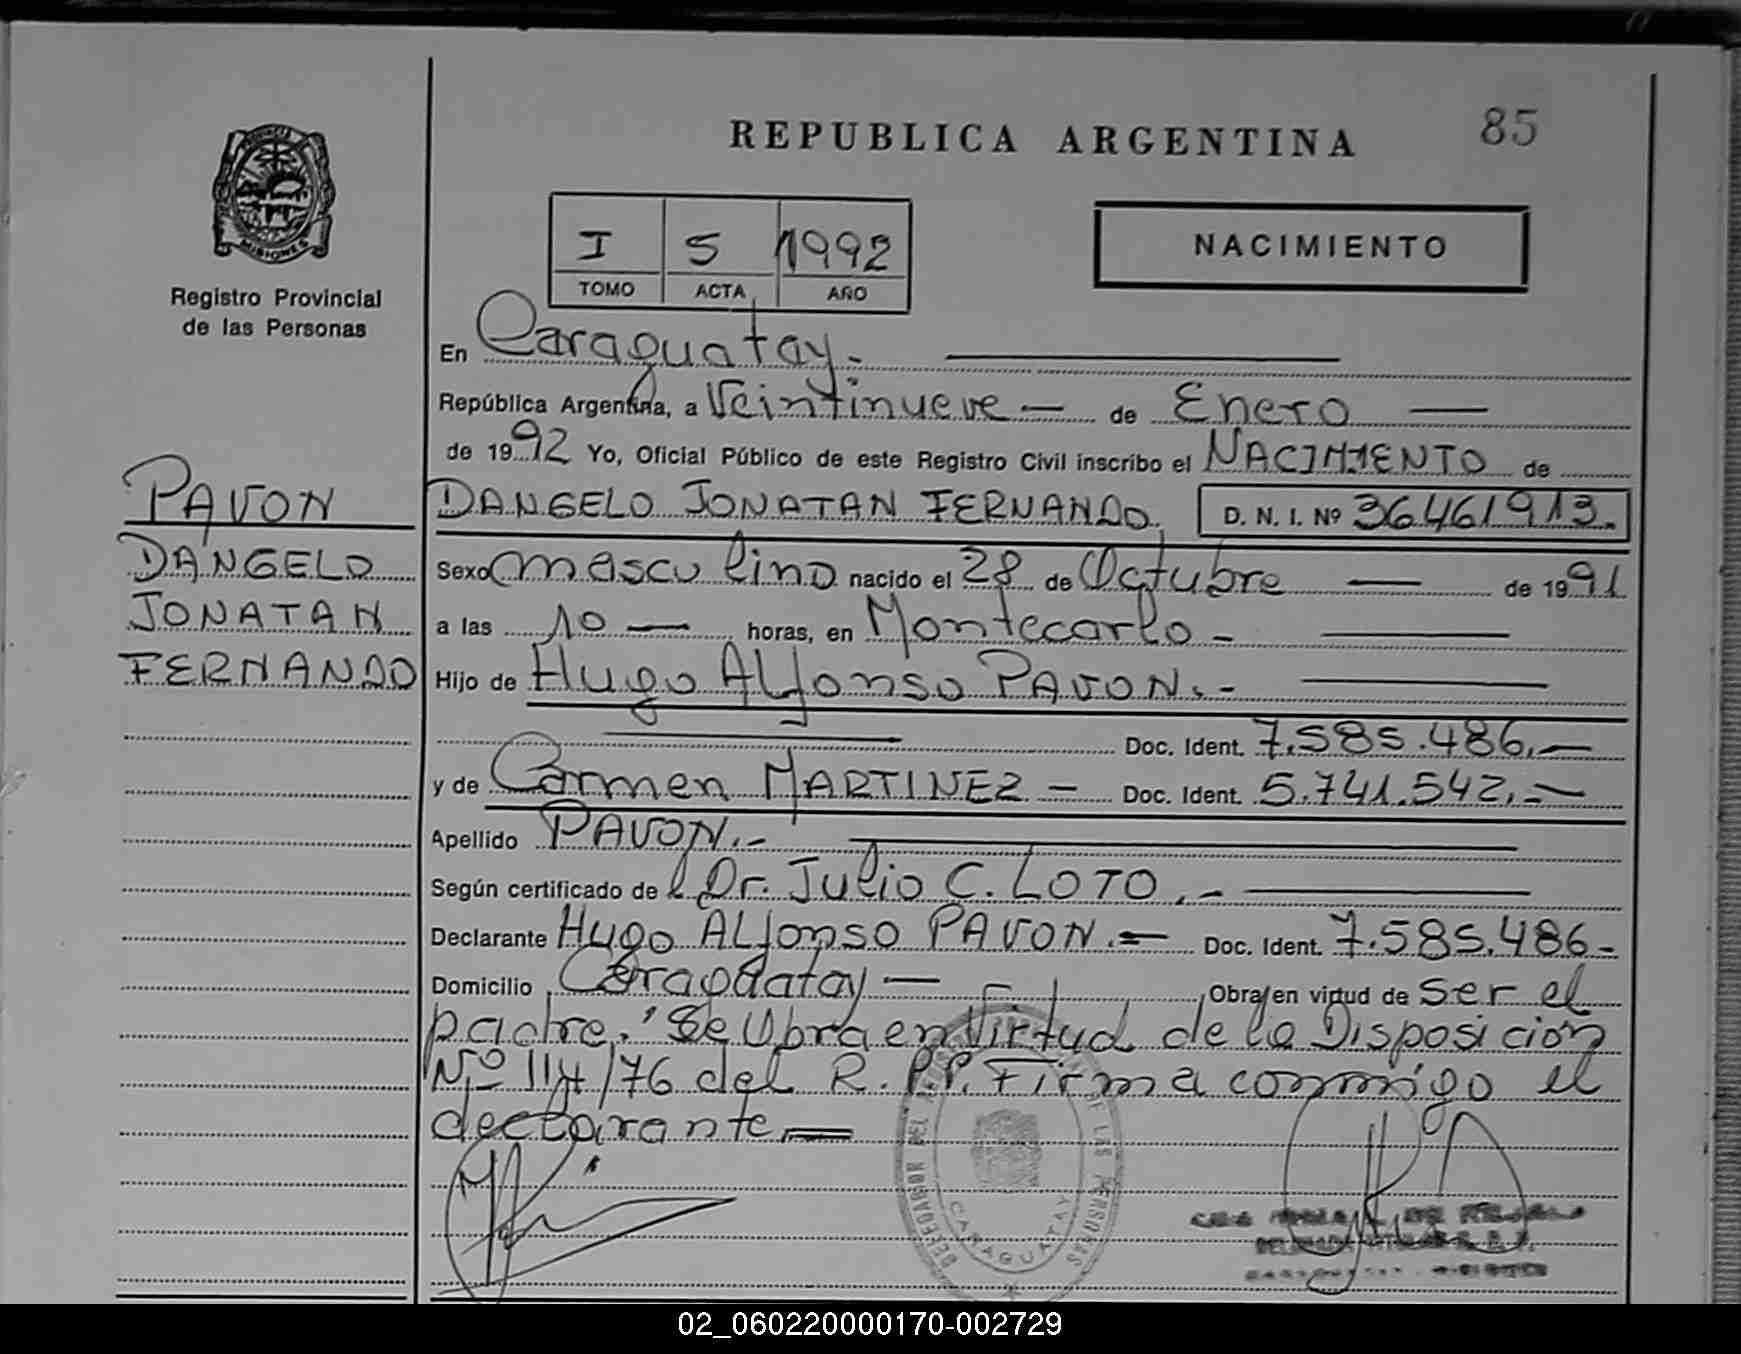 85
REPUBLICA ARGENTINA
MISIONES
Registro Provincial
de las Personas
I 5 1992
TOMO ACTA AÑO
NACIMIENTO
En Caraguatay.-
República Argentina, a Veintinueve de Enero
de 1992 Yo, Oficial Público de este Registro Civil inscribo el NACIMIENTO de
PAVON
DANGELO JONATAN FERNANDO, D. N. I. Nº 36461913.
DANGELO
JONATAN
FERNANDO
Sexo masculino nacido el 28 de Octubre de 1991
a las 10 horas, en Montecarlo -
Hijo de Hugo ALfonso PAVON.-
Doc. Ident. 7.585.486.-
y de Carmen MARTINEZ - Doc. Ident. 5.741.542.-
Apellido PAVON.-
Según certificado del Dr. Julio C. LOTO.-
Declarante Hugo ALfonso PAVON.- Doc. Ident. 7.585.486-
Domicilio Caraguatay - Obra en virtud de ser el
padre. Se Obra en Virtud de la Disposición
Nº 114/76 del R.P.P. Firma conmigo el
declarante
CARAGUATAY
02_060220000170-002729